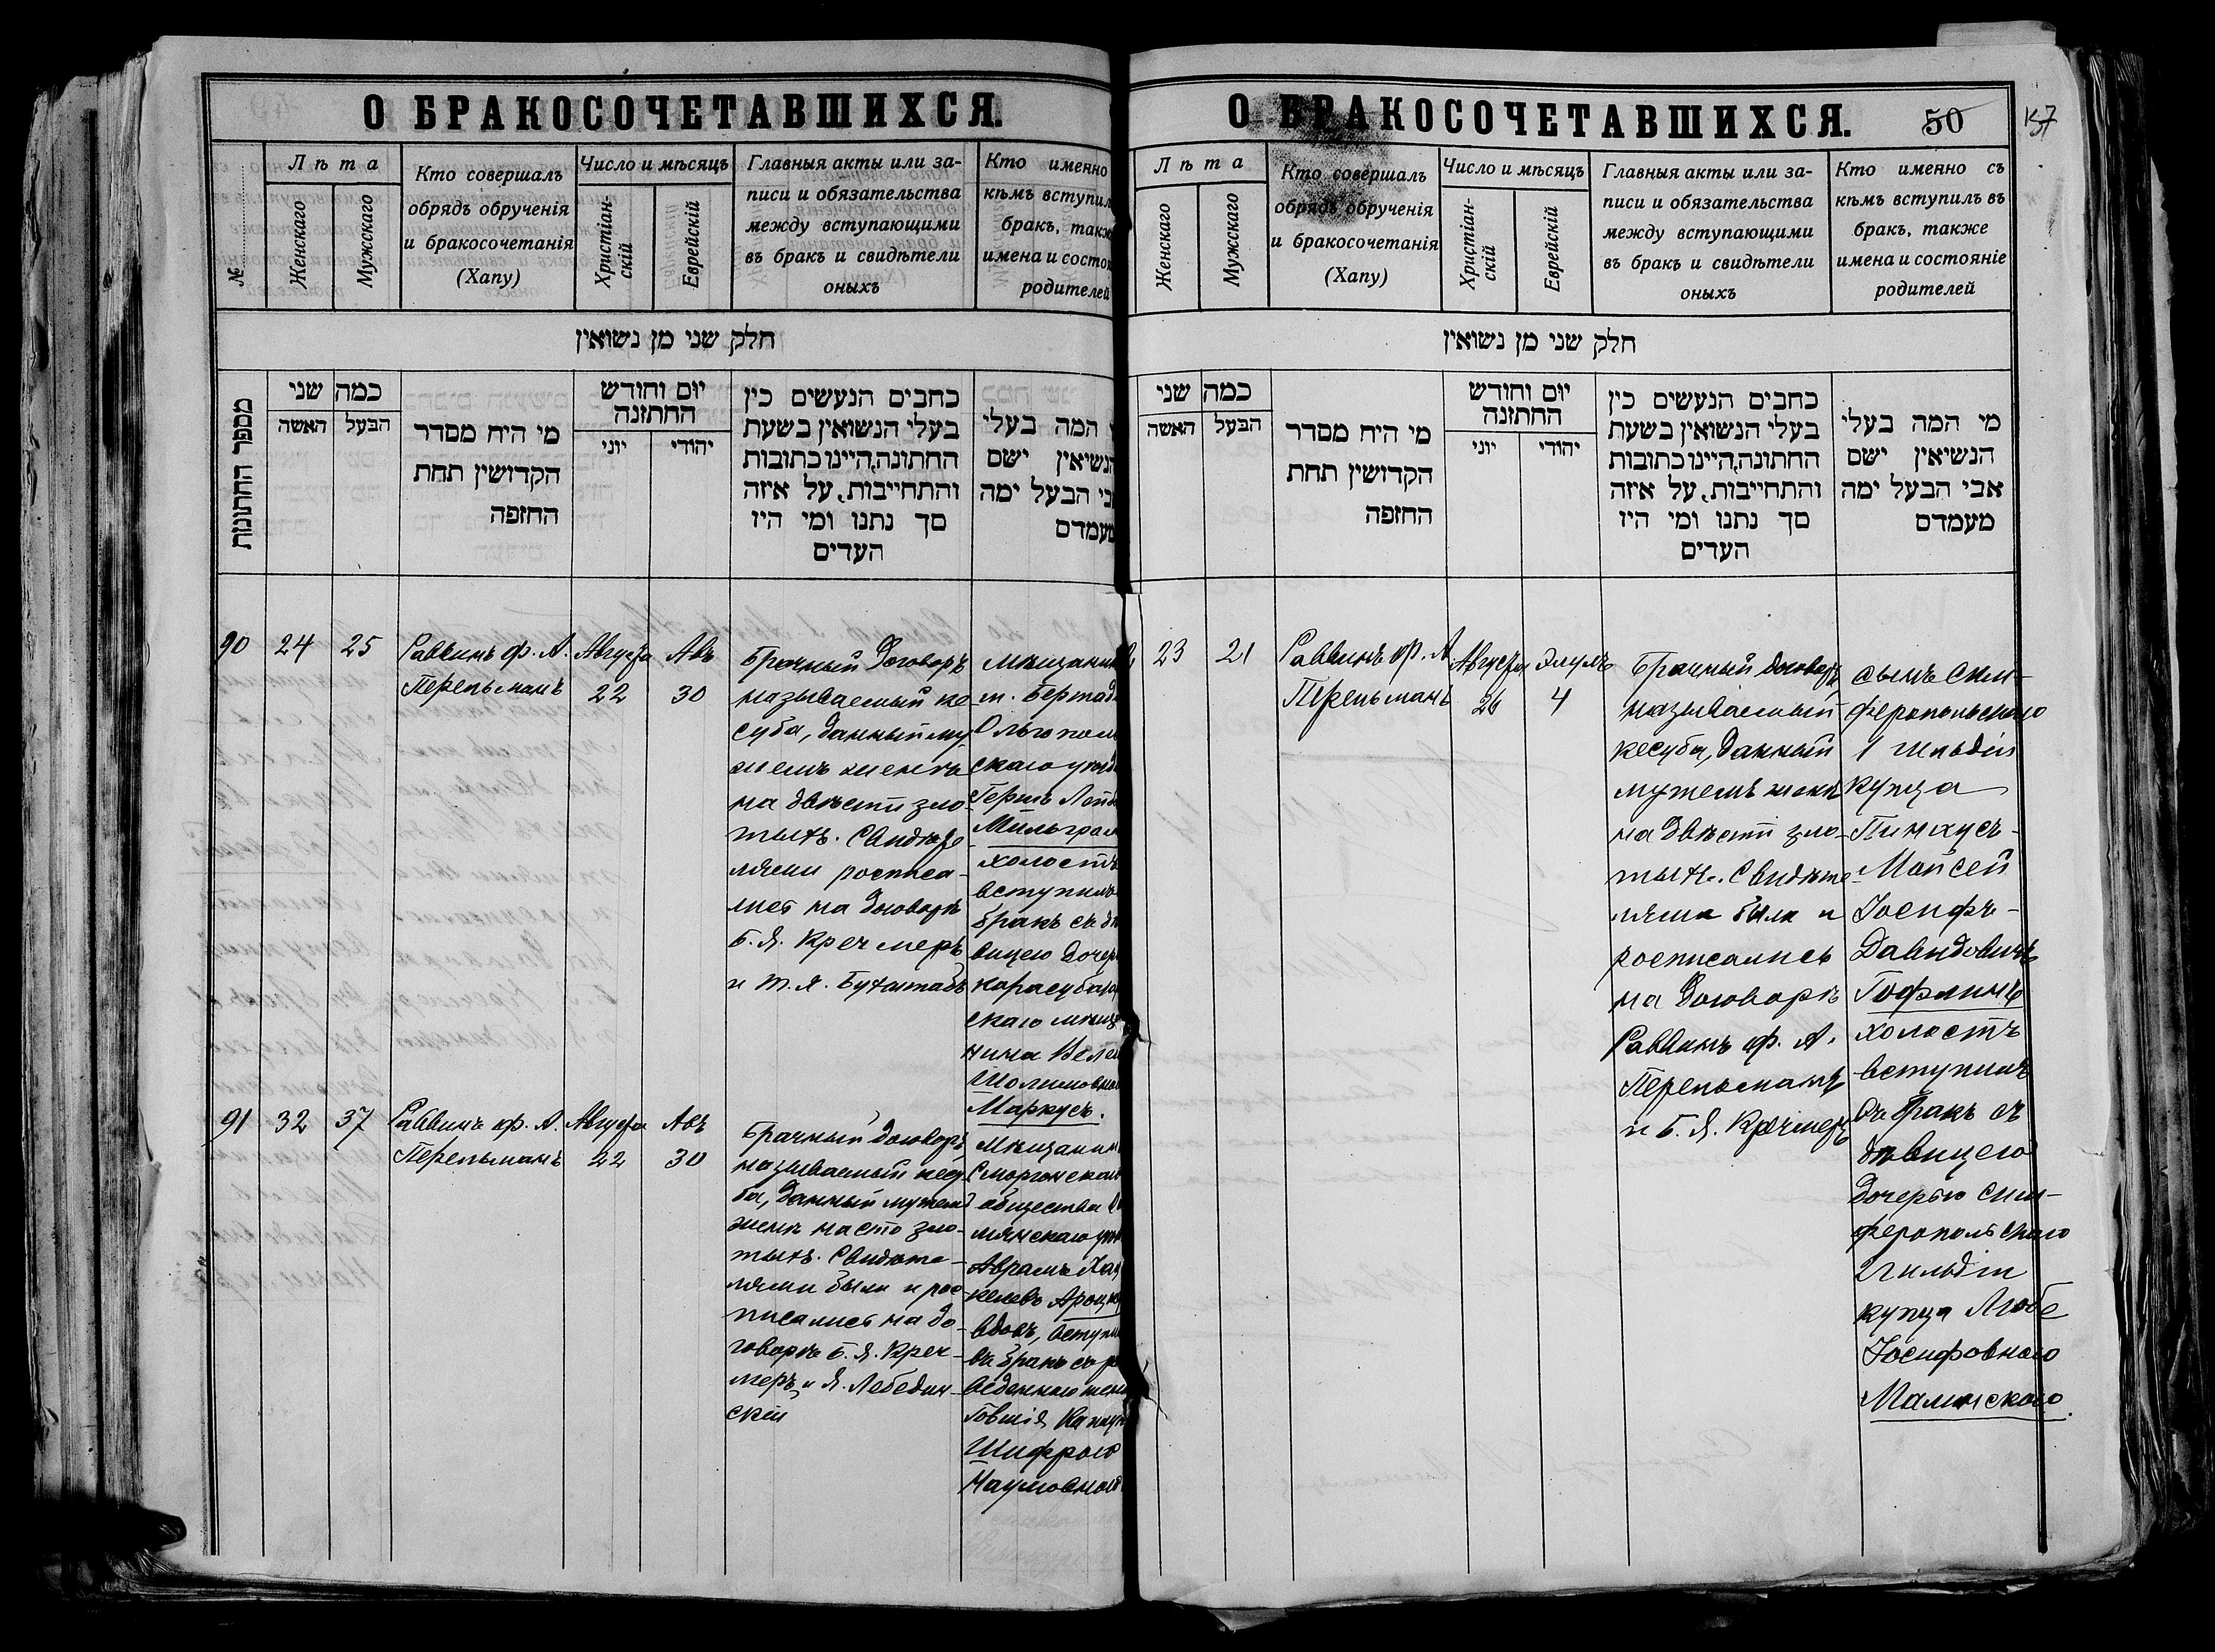 О БРАКОСОЧЕТАВШИХСЯ.
№
Лѣта
Женскаго
Мужскаго
Кто совершалъ
обрядъ обрученія
и бракосочетанія
(Хапу)
Число и мѣсяцъ
Христіан-
скій
Еврейскій
Главныя акты или за-
писи и обязательства
между вступающими
въ бракъ и свидѣтели
оныхъ
Кто именно
кѣмъ вступил
бракъ, такж
имена и состо
родителей
חלק שני מן נשואין
מספר החתונות
כמה שני
האשה
הבעל
מי היח מסדר
הקדושין תחת
החזפה
יום וחודש
החתזנה
יוני
יהודי
כחבים הנעשים כין
בעלי הנשואין בשעת
החתונה,היינו כתובות
והתחייבות, על איזה
סך נתנו ומי היז
העדים
המה בעלי
הנשיאין ישם
אבי הבעל ימה
מעמדם
90
24
25
Раввинъ ф. А.
Перельманъ
Августа
22
Авъ
30
Брачный договоръ
называемый ке-
суба, данный му-
жемъ женѣ
на двѣсти зло-
тыхъ. Свидѣте-
лями росписа-
лись на договорѣ
Б. Я. Кречмеръ
и
Мѣщанин
м. Бершад
Ольгопол
скаго уѣзд
Герш Лейб
Мильгром
холостъ
вступилъ
бракъ съ дѣ
вицею дочер
карасубаза
скаго мѣща
нина
Шолимовно
Маркусъ.
91
32
37
Раввинъ ф. А.
Перельманъ
Августа
22
Авъ
30
Брачный договоръ
называемый кесу-
ба, данный мужемъ
женѣ на сто зло-
тыхъ. Свидѣте-
лями были и рос-
писались на до-
говорѣ Б. Я. Креч-
меръ и Я. Лебедин-
скій
Мѣщанин
Сморгонскаго
общества
мянскаго уѣз
Аврамъ Хац
келевъ
вдовъ, вступи
въ бракъ съ ра
веденною жен
Шифрою
Наумовною
О БРАКОСОЧЕТАВШИХСЯ.
50
Лѣта
Женскаго
Мужскаго
Кто совершалъ
обрядъ обрученія
и бракосочетанія
(Хапу)
Число и мѣсяцъ
Христіан-
скій
Еврейскій
Главныя акты или за-
писи и обязательства
между вступающими
въ бракъ и свидѣтели
оныхъ
Кто именно съ
кѣмъ вступилъ въ
бракъ, также
имена и состояніе
родителей
חלק שני מן נשואין
כמה שני
האשה
הבעל
מי היח מסדר
הקדושין תחת
החזפה
יום וחודש
החתזנה
יוני
יהודי
כחבים הנעשים כין
בעלי הנשואין בשעת
החתונה,היינו כתובות
והתחייבות, על איזה
סך נתנו ומי היז
העדים
מי המה בעלי
הנשיאין ישם
אבי הבעל ימה
מעמדם
23
21
Раввинъ ф. А
Перельманъ
Августа
26
Элулъ
4
Брачный договоръ
называемый
кесуба, данный
мужемъ женѣ
на двѣсти зло-
тыхъ. Свидѣте-
лями были и
росписались
на договорѣ
Раввинъ ф. А.
Перельманъ
и Б. Я. Кречмеръ
сынъ Сим-
феропольскаго
1 гильдіи
купца
Пинхусъ-
Мойсей
Іосифъ-
Давидовичъ
Гофлинъ
холостъ
вступилъ
въ бракъ съ
дѣвицею
дочерью Сим-
феропольскаго
2 гильдіи
купца Любе
Іосифовною
Малинскою.